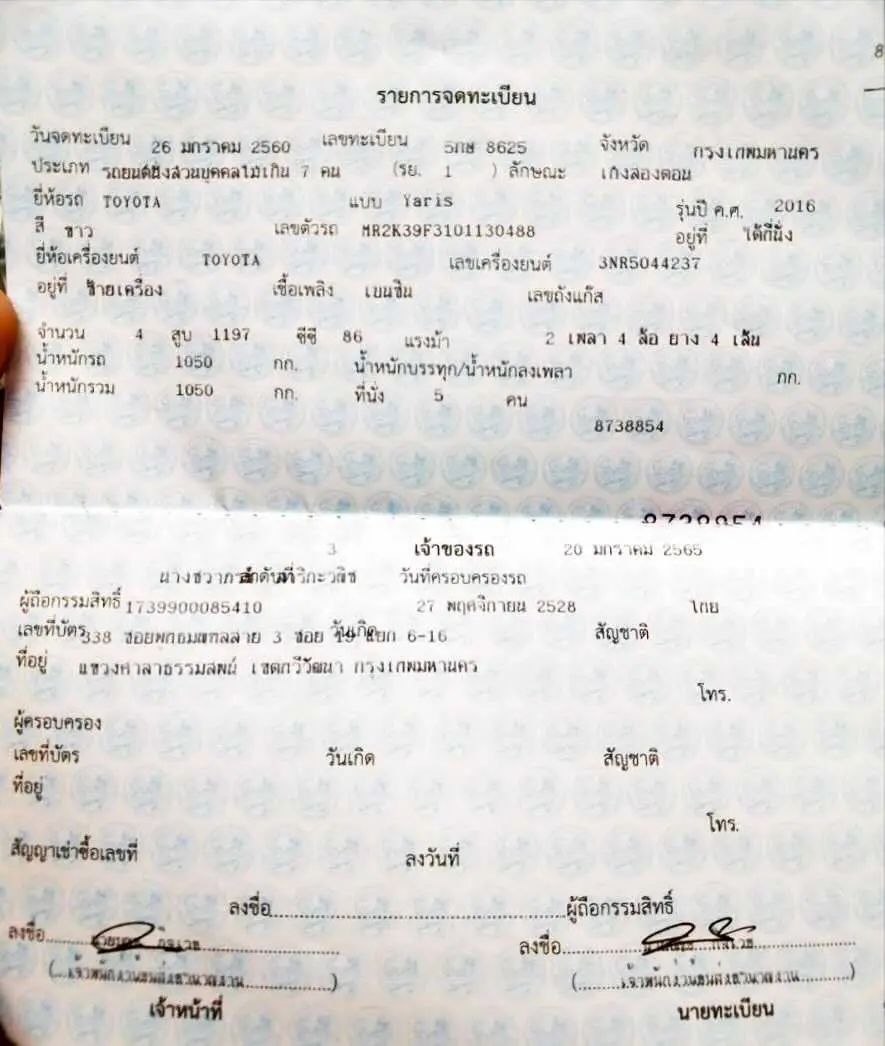 8
รายการจดทะเบียน
วันจดทะเบียน 26 มกราคม 2560 เลขทะเบียน 5กษ 8625 จังหวัด กรุงเทพมหานคร
ประเภท รถยนต์นั่งส่วนบุคคลไม่เกิน 7 คน (รย. 1 ) ลักษณะ เก๋งสองตอน
ยี่ห้อรถ TOYOTA แบบ Yaris รุ่นปี ค.ศ. 2016
สี ขาว เลขตัวรถ MR2K39F3101130488 อยู่ที่ ใต้ที่นั่ง
ยี่ห้อเครื่องยนต์ TOYOTA เลขเครื่องยนต์ 3NR5044237
อยู่ที่ ซ้ายเครื่อง เชื้อเพลิง เบนซิน เลขถังแก๊ส
จำนวน 4 สูบ 1197 ซีซี 86 แรงม้า 2 เพลา 4 ล้อ ยาง 4 เส้น
น้ำหนักรถ 1050 กก. น้ำหนักบรรทุก/น้ำหนักลงเพลา กก.
น้ำหนักรวม 1050 กก. ที่นั่ง 5 คน
8738854
8738854
3 เจ้าของรถ 20 มกราคม 2565
ลำดับที่ วันที่ครอบครองรถ
ผู้ถือกรรมสิทธิ์ 1739900085410 27 พฤศจิกายน 2528 ไทย
เลขที่บัตร 338 ซอยพุทธมณฑลสาย 3 ซอย 19 แยก 6-16 วันเกิด สัญชาติ
ที่อยู่ แขวงศาลาธรรมสพน์ เขตทวีวัฒนา กรุงเทพมหานคร
โทร.
ผู้ครอบครอง
เลขที่บัตร วันเกิด สัญชาติ
ที่อยู่
โทร.
สัญญาเช่าซื้อเลขที่ ลงวันที่
ลงชื่อ ผู้ถือกรรมสิทธิ์
ลงชื่อ ลงชื่อ
(เจ้าพนักงานขนส่งชำนาญงาน) (เจ้าพนักงานขนส่งชำนาญงาน)
เจ้าหน้าที่ นายทะเบียน